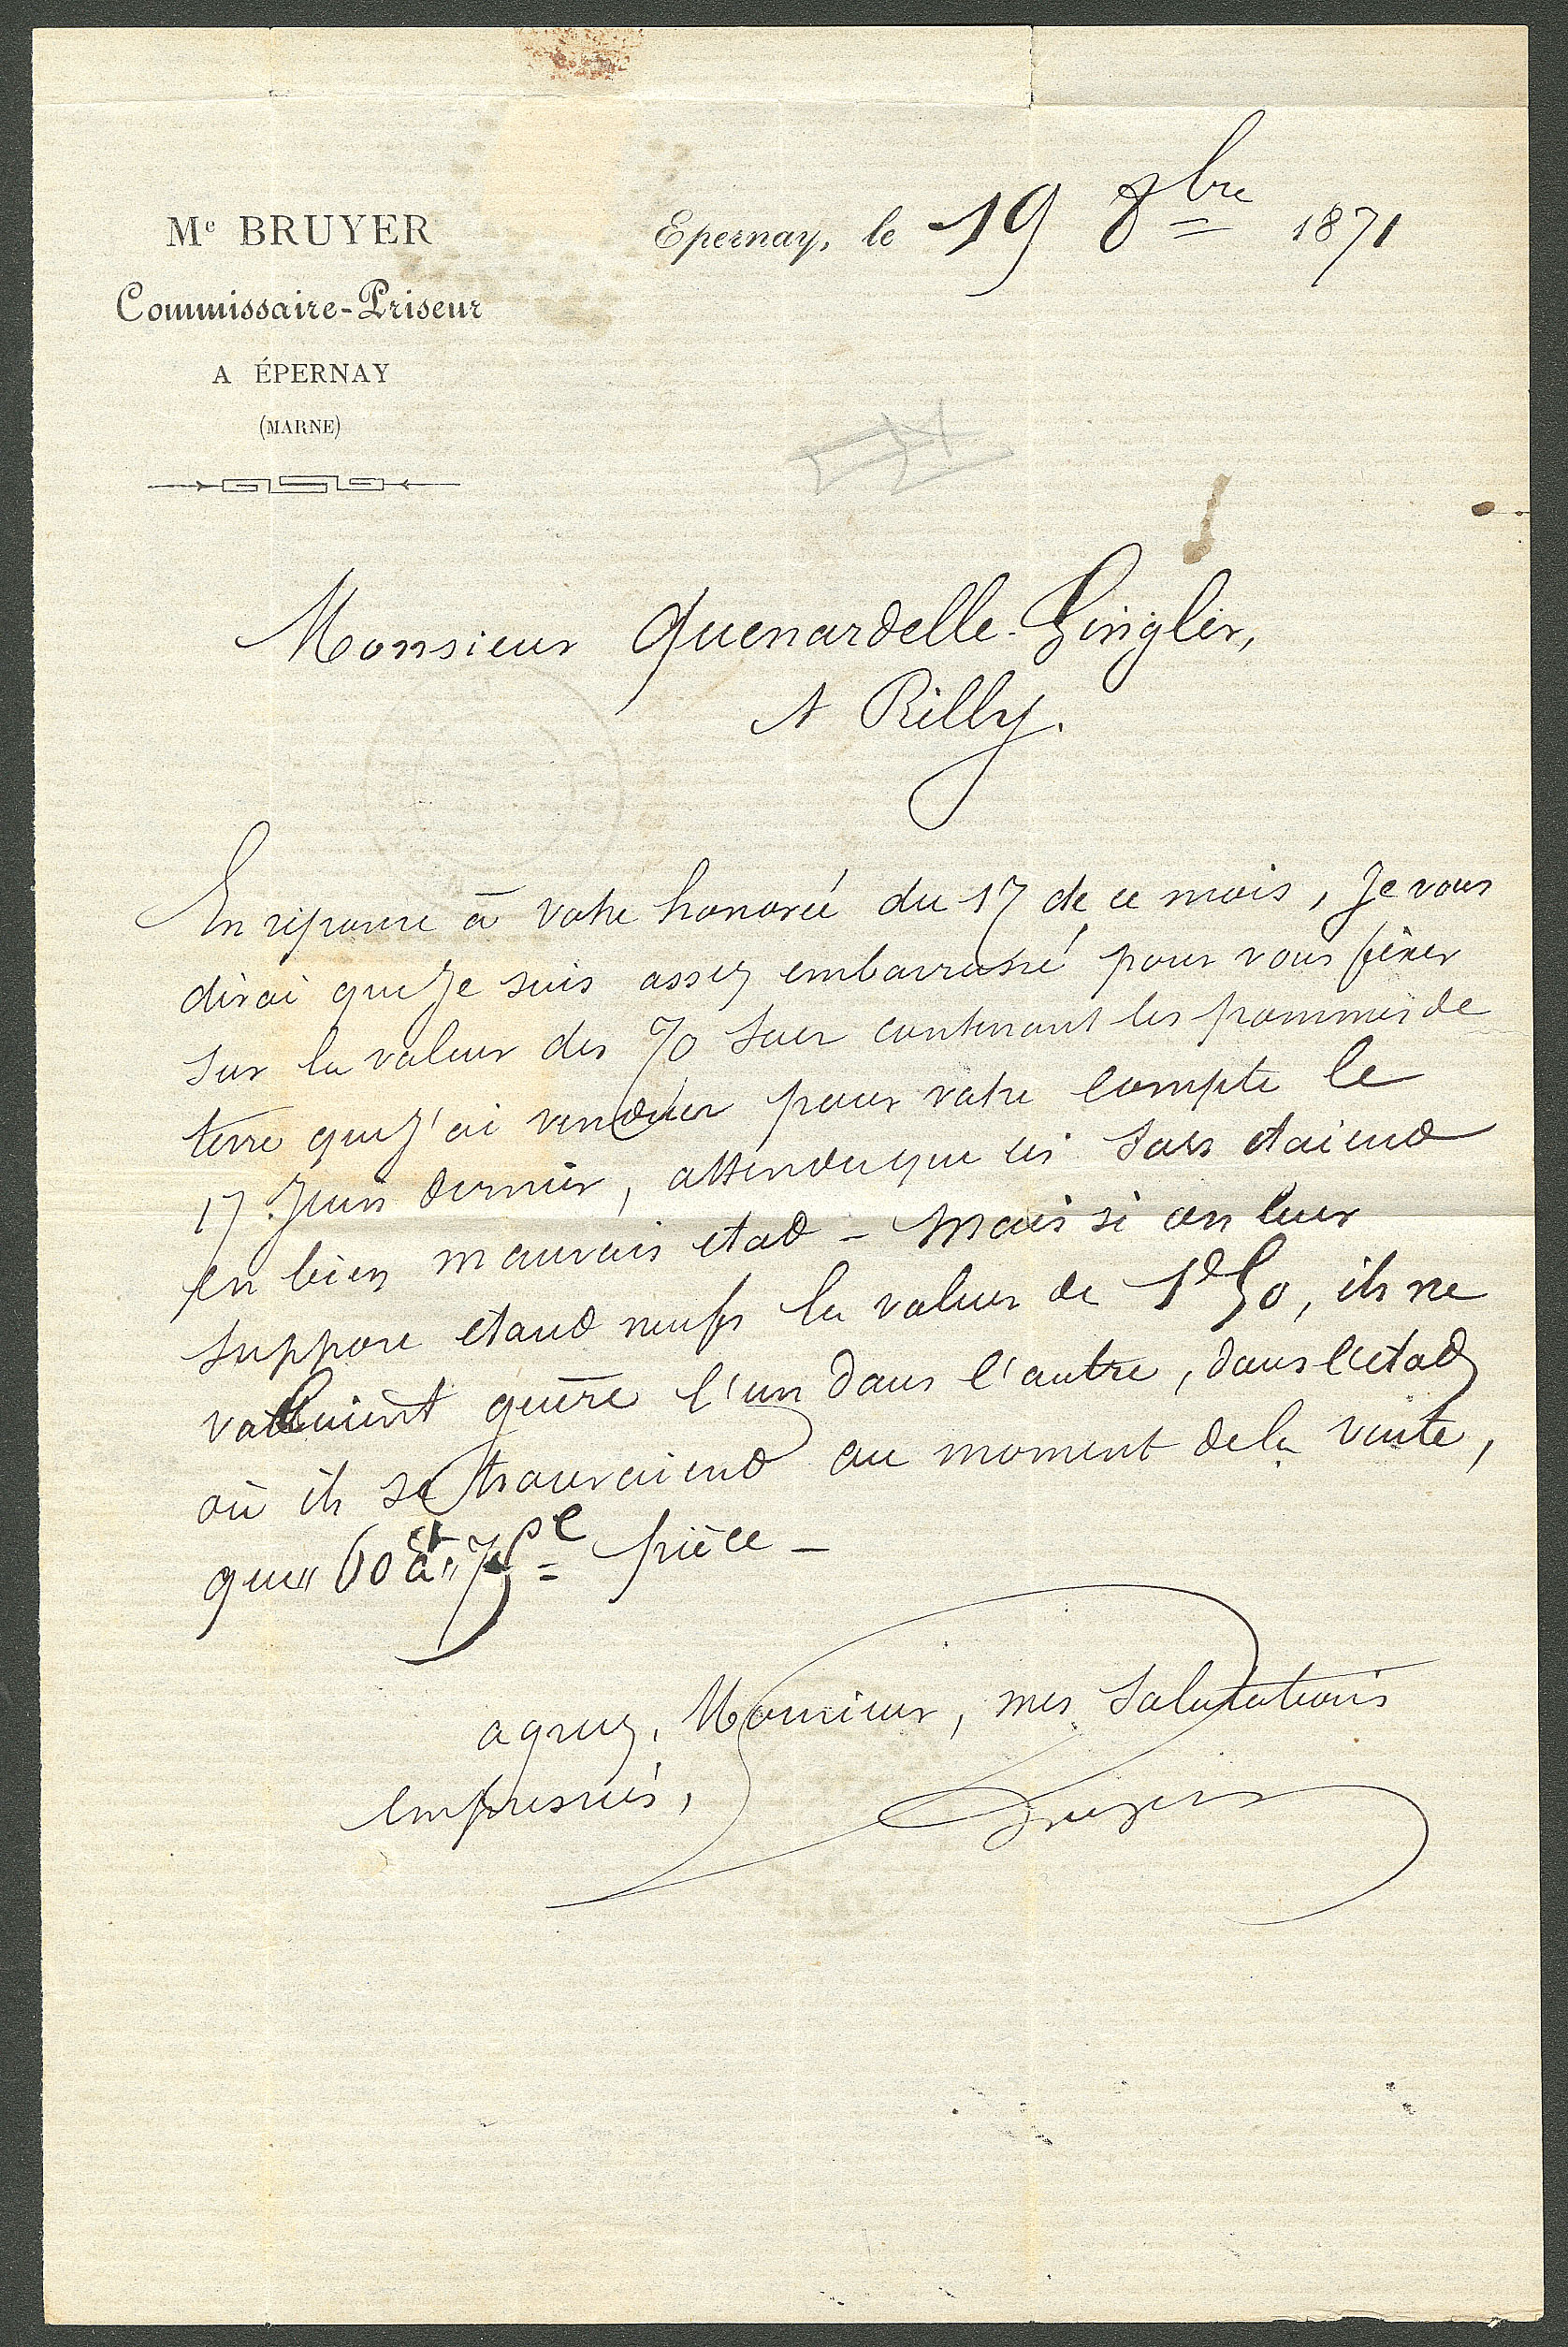 Me BRUYER
Commissaire-Priseur
A ÉPERNAY
(MARNE)
Epernay, le 19 8bre 1871
Monsieur Quenardelle-Gingler,
A Rilly.
En réponse à votre honorée du 17 de ce mois, Je vous
dirai que Je suis assez embarrassé pour vous fixer
sur la valeur des 70 sacs contenant les pommes de
terre que J'ai vendues pour votre compte le
17 Juin dernier, attendu que ces sacs étaient
en bien mauvais état - Mais si on leur
suppose étant neufs la valeur de 1f 50, ils ne
valaient guère l'un dans l'autre, dans l'état
où ils se trouvaient au moment de la vente,
que 60 à 75c pièce -
agréez, Monsieur, mes salutations
empressées,
Bruyer